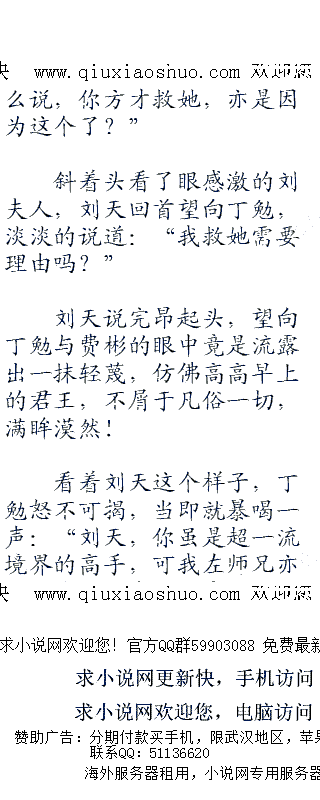 快 www.qiuxiaoshuo.com 欢迎您
么说，你方才救她，亦是因
为这个了？”
斜着头看了眼感激的刘
夫人，刘天回首望向丁勉，
淡淡的说道：“我救她需要
理由吗？”
刘天说完昂起头，望向
丁勉与费彬的眼中竟是流露
出一抹轻蔑，仿佛高高早上
的君王，不屑于凡俗一切，
满眸漠然！
看着刘天这个样子，丁
勉怒不可揭，当即就暴喝一
声：“刘天，你虽是超一流
境界的高手，可我左师兄亦
快 www.qiuxiaoshuo.com 欢迎您
求小说网欢迎您！官方QQ群59903088 免费最新
求小说网更新快，手机访问
求小说网欢迎您，电脑访问
赞助广告：分期付款买手机，限武汉地区，苹果
联系QQ：51136620
海外服务器租用，小说网专用服务器